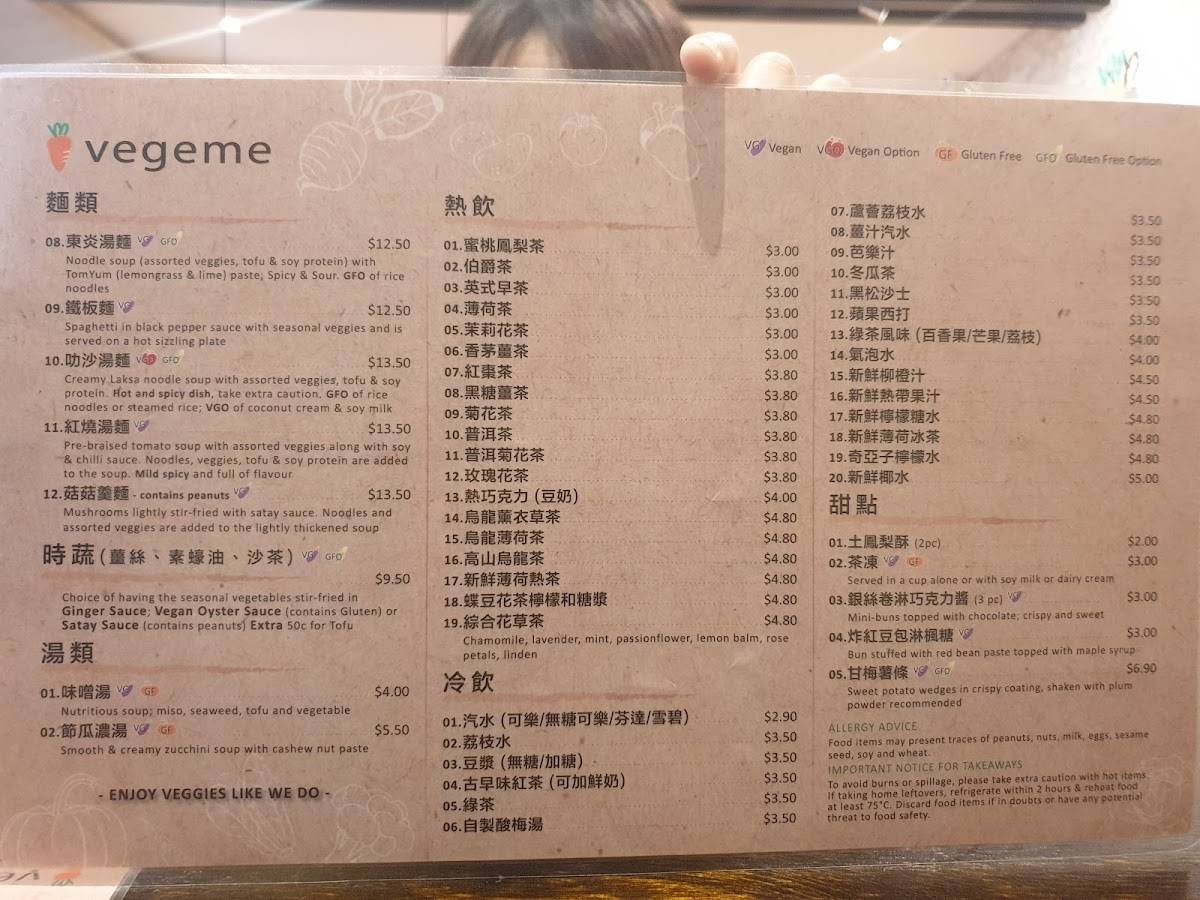 vegeme
VG Vegan VGO Vegan Option GF Gluten Free GFO Gluten Free Option
麵類
08.東炎湯麵 VG GFO $12.50
Noodle soup (assorted veggies, tofu & soy protein) with
TomYum (lemongrass & lime) paste; Spicy & Sour. GFO of rice
noodles
09.鐵板麵 VG $12.50
Spaghetti in black pepper sauce with seasonal veggies and is
served on a hot sizzling plate
10.叻沙湯麵 VGO GFO $13.50
Creamy Laksa noodle soup with assorted veggies, tofu & soy
protein. Hot and spicy dish, take extra caution. GFO of rice
noodles or steamed rice; VGO of coconut cream & soy milk
11.紅燒湯麵 VG $13.50
Pre-braised tomato soup with assorted veggies along with soy
& chilli sauce. Noodles, veggies, tofu & soy protein are added
to the soup. Mild spicy and full of flavour
12.菇菇羹麵 - contains peanuts VG $13.50
Mushrooms lightly stir-fried with satay sauce. Noodles and
assorted veggies are added to the lightly thickened soup
時蔬(薑絲、素蠔油、沙茶) VG GFO
$9.50
Choice of having the seasonal vegetables stir-fried in
Ginger Sauce; Vegan Oyster Sauce (contains Gluten) or
Satay Sauce (contains peanuts) Extra 50c for Tofu
湯類
01.味噌湯 VG GF $4.00
Nutritious soup; miso, seaweed, tofu and vegetable
02.節瓜濃湯 VG GF $5.50
Smooth & creamy zucchini soup with cashew nut paste
- ENJOY VEGGIES LIKE WE DO -
熱飲
01.蜜桃鳳梨茶 $3.00
02.伯爵茶 $3.00
03.英式早茶 $3.00
04.薄荷茶 $3.00
05.茉莉花茶 $3.00
06.香茅薑茶 $3.00
07.紅棗茶 $3.80
08.黑糖薑茶 $3.80
09.菊花茶 $3.80
10.普洱茶 $3.80
11.普洱菊花茶 $3.80
12.玫瑰花茶 $3.80
13.熱巧克力 (豆奶) $4.00
14.烏龍薰衣草茶 $4.80
15.烏龍薄荷茶 $4.80
16.高山烏龍茶 $4.80
17.新鮮薄荷熱茶 $4.80
18.蝶豆花茶檸檬和糖漿 $4.80
19.綜合花草茶 $4.80
Chamomile, lavender, mint, passionflower, lemon balm, rose
petals, linden
冷飲
01.汽水 (可樂/無糖可樂/芬達/雪碧) $2.90
02.荔枝水 $3.50
03.豆漿 (無糖/加糖) $3.50
04.古早味紅茶 (可加鮮奶) $3.50
05.綠茶 $3.50
06.自製酸梅湯 $3.50
07.蘆薈荔枝水 $3.50
08.薑汁汽水 $3.50
09.芭樂汁 $3.50
10.冬瓜茶 $3.50
11.黑松沙士 $3.50
12.蘋果西打 $3.50
13.綠茶風味 (百香果/芒果/荔枝) $4.00
14.氣泡水 $4.00
15.新鮮柳橙汁 $4.50
16.新鮮熱帶果汁 $4.50
17.新鮮檸檬糖水 $4.80
18.新鮮薄荷冰茶 $4.80
19.奇亞子檸檬水 $4.80
20.新鮮椰水 $5.00
甜點
01.土鳳梨酥 (2pc) $2.00
02.茶凍 VG GF $3.00
Served in a cup alone or with soy milk or dairy cream
03.銀絲卷淋巧克力醬 (3 pc) VG $3.00
Mini-buns topped with chocolate; crispy and sweet
04.炸紅豆包淋楓糖 VG $3.00
Bun stuffed with red bean paste topped with maple syrup
05.甘梅薯條 VG GFO $6.90
Sweet potato wedges in crispy coating, shaken with plum
powder recommended
ALLERGY ADVICE
Food items may present traces of peanuts, nuts, milk, eggs, sesame
seed, soy and wheat.
IMPORTANT NOTICE FOR TAKEAWAYS
To avoid burns or spillage, please take extra caution with hot items.
If taking home leftovers, refrigerate within 2 hours & reheat food
at least 75°C. Discard food items if in doubts or have any potential
threat to food safety.